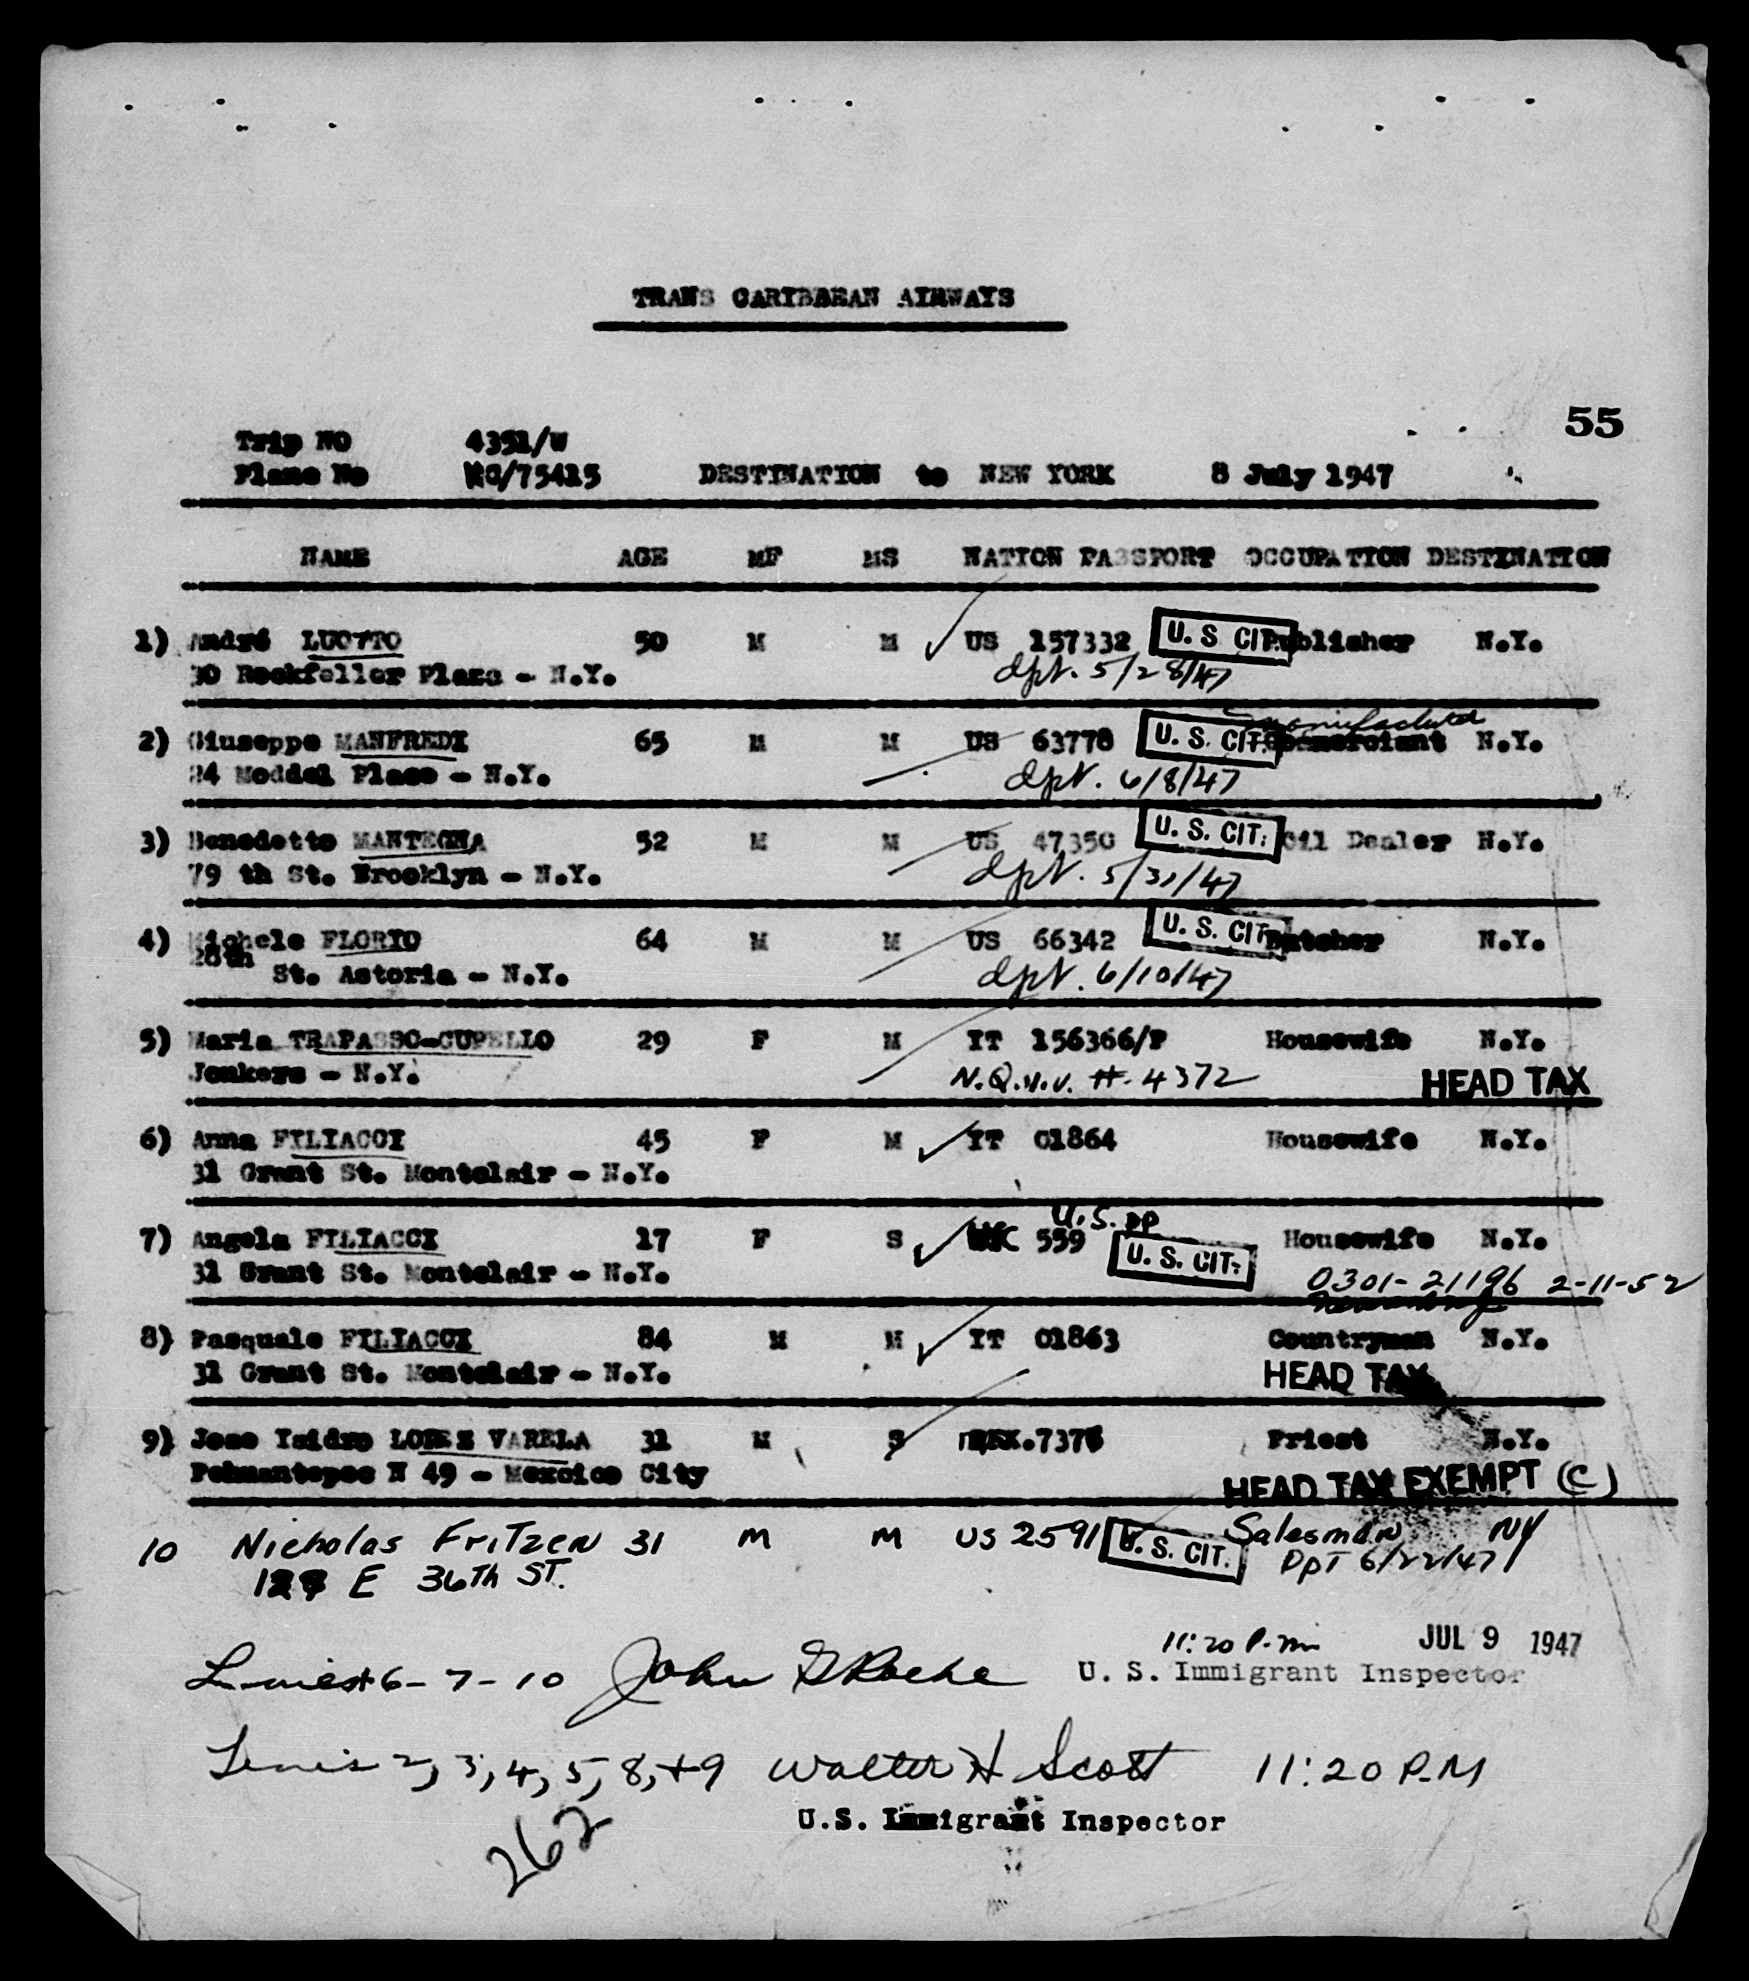 TRANS CARIBBEAN AIRWAYS
55
Trip NO 4351/W
Plane No NC/75415 DESTINATION to NEW YORK 8 July 1947
NAME AGE MF MS NATION PASSPORT OCCUPATION DESTINATION
1) André LUOTTO 50 M M US 157332 U. S CIT. Publisher N.Y.
30 Rockfeller Plaza - N.Y. dpt. 5/28/47
manufacturer
2) Giuseppe MANFREDI 65 M M US 63778 U. S. CIT. Commerciant N.Y.
24 Weddel Place - N.Y. dpt. 6/8/47
3) Benedetto MANTEGNA 52 M M US 47350 U. S. CIT. Oil Dealer N.Y.
79 th St. Brooklyn - N.Y. dpt. 5/31/47
4) Michele FLORIO 64 M M US 66342 U. S. CIT. Butcher N.Y.
28th St. Astoria - N.Y. dpt. 6/10/47
5) Maria TRAPASSO-CUPELLO 29 F M IT 156366/P Housewife N.Y.
Jonkers - N.Y. N.Q.I.V. #. 4372 HEAD TAX
6) Anna FILIACCI 45 F M IT 01864 Housewife N.Y.
31 Grant St. Montclair - N.Y.
U.S. PP
7) Angela FILIACCI 17 F S 559 U. S. CIT. Housewife N.Y.
31 Grant St. Montclair - N.Y. 0301-21196 2-11-52
8) Pasquale FILIACCI 84 M M IT 01863 Countryman N.Y.
31 Grant St. Montclair - N.Y. HEAD TAX
9) Jose Isidro LOPEZ VARELA 31 M S MEX.7376 Priest N.Y.
Pehuantepec N 49 - Mexcico City HEAD TAX EXEMPT (C)
10 Nicholas FRITZEN 31 M M US 2591 U. S. CIT. Salesman NY
E 36TH ST. DPT 6/22/47
11:20 P.m JUL 9 1947
6-7-10 John G Roche U. S. Immigrant Inspector
Lines 2, 3, 4, 5, 8, +9 Walter H Scott 11:20 P.M
U.S. Immigrant Inspector
262